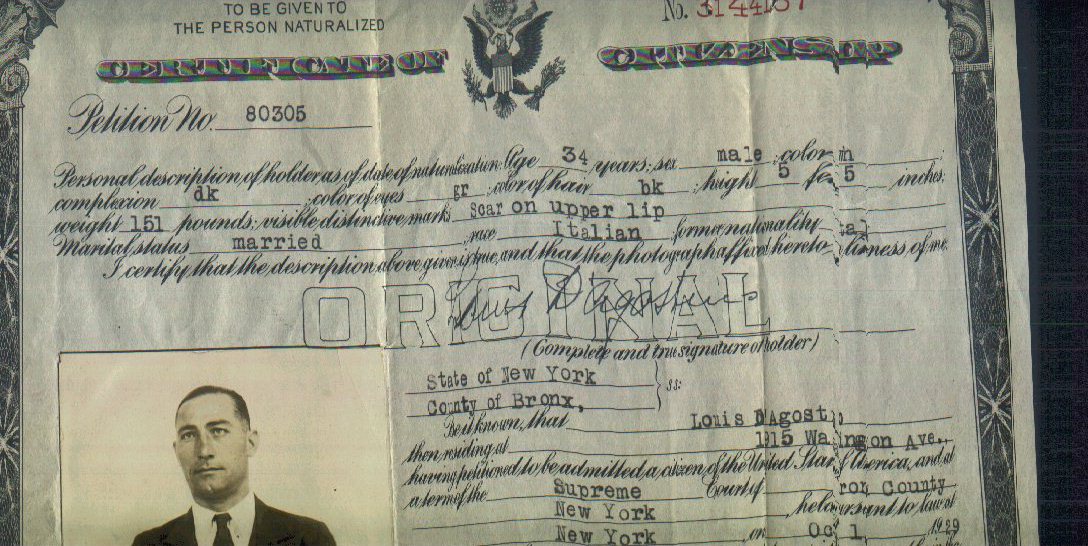 TO BE GIVEN TO
THE PERSON NATURALIZED
No. 3144137
CERTIFICATE OF
Petition No. 80305
Personal description of holder as of date of naturalization: Age 34 years; sex male; color
complexion dk; color of eyes gr; color of hair bk; height 5 feet 5 inches;
weight 151 pounds; visible distinctive marks Scar on upper lip
Marital status married; race Italian former nationality
I certify that the description above given is true, and that the photograph affixed hereto is a likeness of me.
ORIGINAL
Louis D'Agostino
(Complete and true signature of holder)
State of New York
County of Bronx, } ss:
Be it known, that Louis D'Agost
then residing at Ave.,
having petitioned to be admitted a citizen of the United States of America, and at
a term of the Supreme Court of County
New York held pursuant to law at
New York on 1929